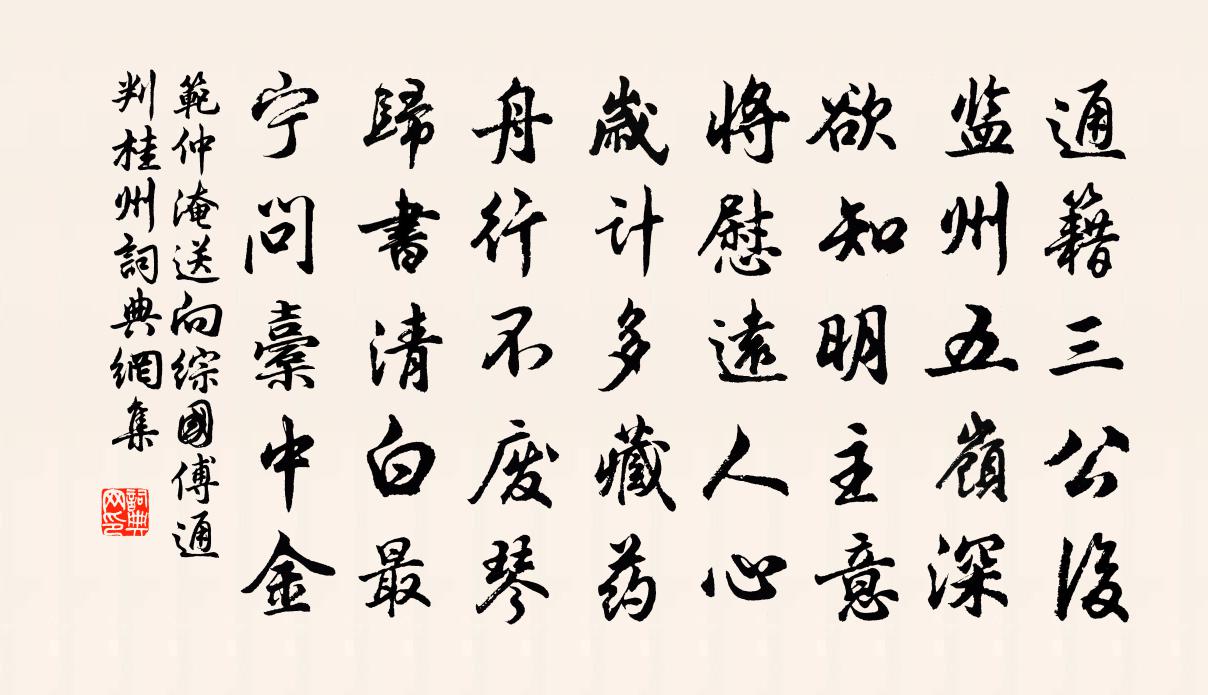 通籍三公後
监州五嶺深
欲知明主意
將慰遠人心
歲計多藏药
舟行不废琴
歸書清白最
宁問橐中金
範仲淹送向綜國傅通
判桂州詞典網集
詞典网印